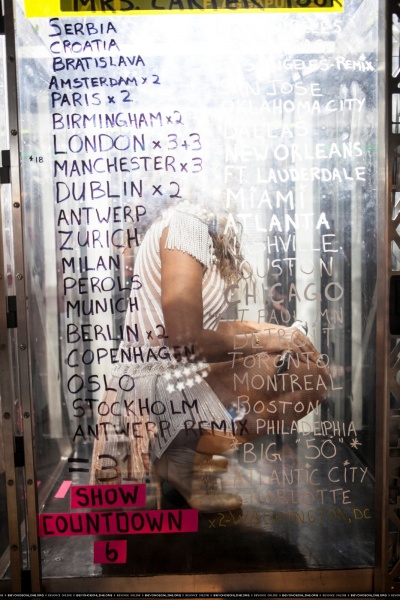 MRS. CARTER TOUR
SERBIA
CROATIA
BRATISLAVA
AMSTERDAM x 2
PARIS x 2
BIRMINGHAM x2
LONDON x 3+3
$18
MANCHESTER x 3
DUBLIN x 2
ANTWERP
ZURICH
MILAN
PEROLS
MUNICH
BERLIN x 2
COPENHAGEN
OSLO
STOCKHOLM
ANTWERP REMIX
= 31
SHOW
COUNTDOWN
6
ANGELES-REMIX
SAN JOSE
OKLAHOMA CITY
DALLAS
NEW ORLEANS
FT. LAUDERDALE
MIAMI
ATLANTA
NASHVILLE
HOUSTON
CHICAGO
ST PAUL MN
DETROIT
TORONTO
MONTREAL
BOSTON
PHILADELPHIA
BIG "50"*
ATLANTIC CITY
CHARLOTTE
x2-WASHINGTON, DC